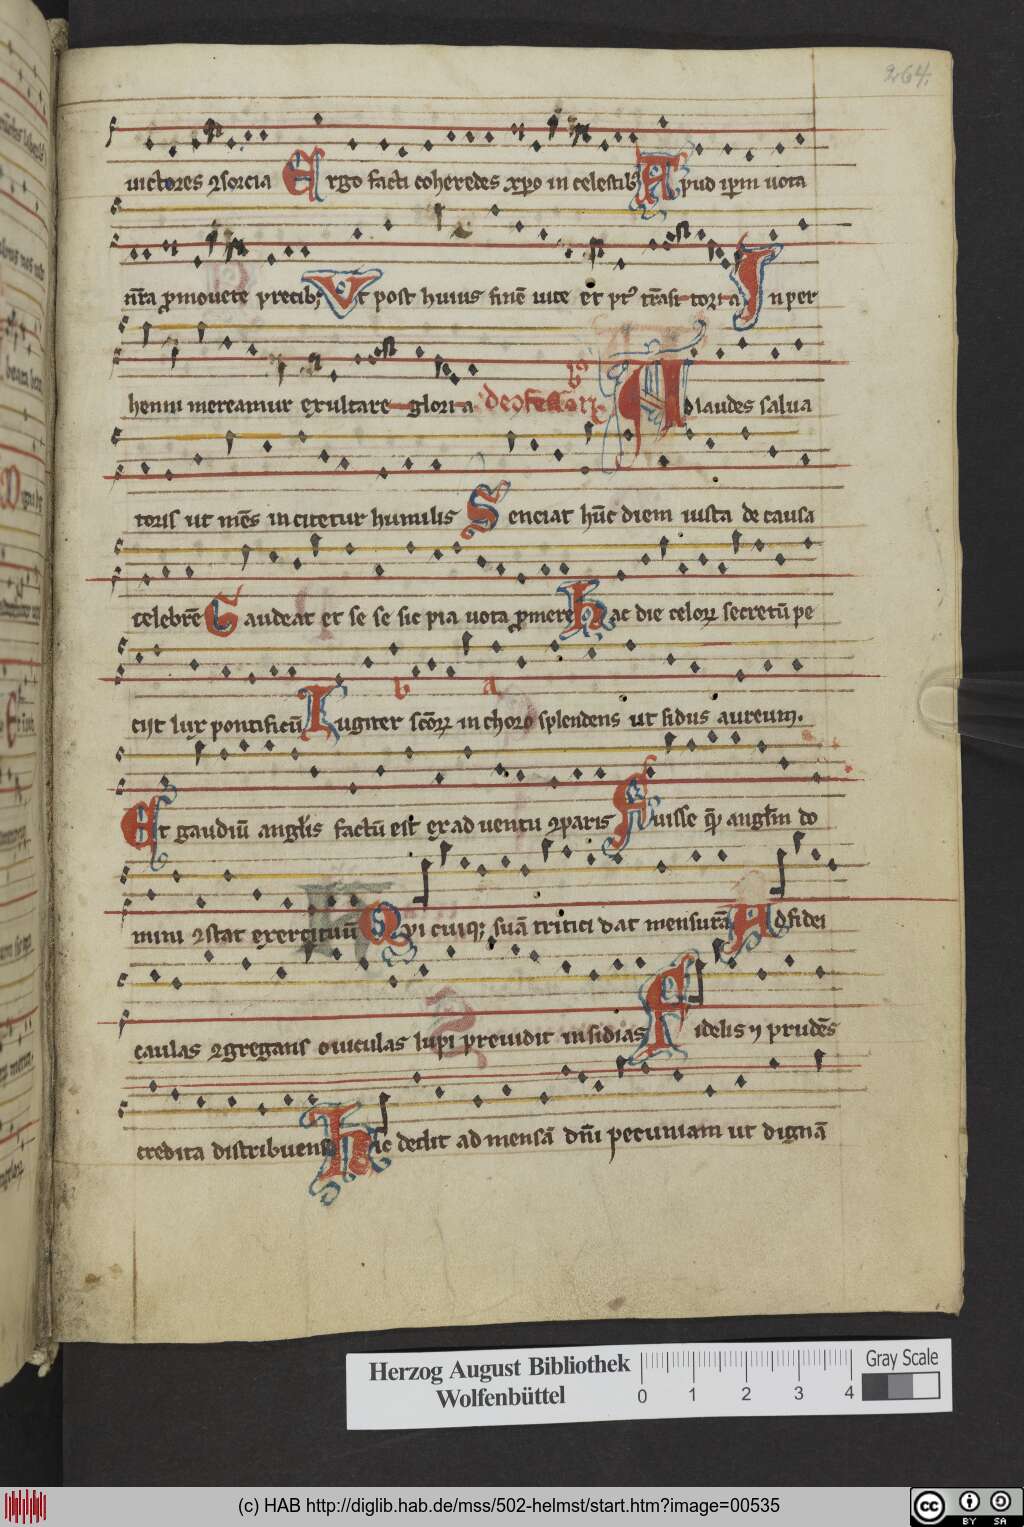 264.
uictores ⁊sorcia Ergo facti coheredes xpo in celestibꝰ Apud ipm uota
nr̄a ꝓmouete precibꝫ Vt post huius finē uite et pꝰ trāsi tori a In per
henni mereamur exultare glori a de ꝯfessorib;
Ad laudes salua
toris ut mēs in citetur humilis Senciat hūc diem iusta de causa
celebrē Gaudeat et se se sic pia uota ꝓmere Hac die celoꝝ secretū pe
tijt lux pontificū Iugiter scōꝝ in choro splendens ut sidus aureum.
Et gaudiū anglis factū est ex ad uentu ꝯparis Fuisse qē anglm̄ do
mini ⁊stat exercituū Qvi cuiqꝫ suā tritici dat mensurā Ad fidei
caulas ⁊gregans ouiculas lupi preuidit insidias Fidelis ⁊ prudēs
credita distribuens Hic dedit ad mensā dn̄i pecuniam ut dignā
b a
Herzog August Bibliothek
Wolfenbüttel
0 1 2 3 4
Gray Scale
(c) HAB http://diglib.hab.de/mss/502-helmst/start.htm?image=00535
cc BY SA